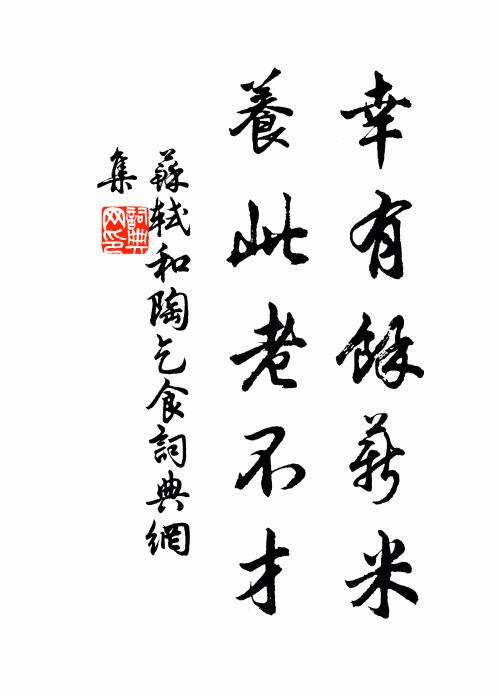 幸有餘薪米
養此老不才
蘇軾和陶乞食詞典網
集
詞典
网印